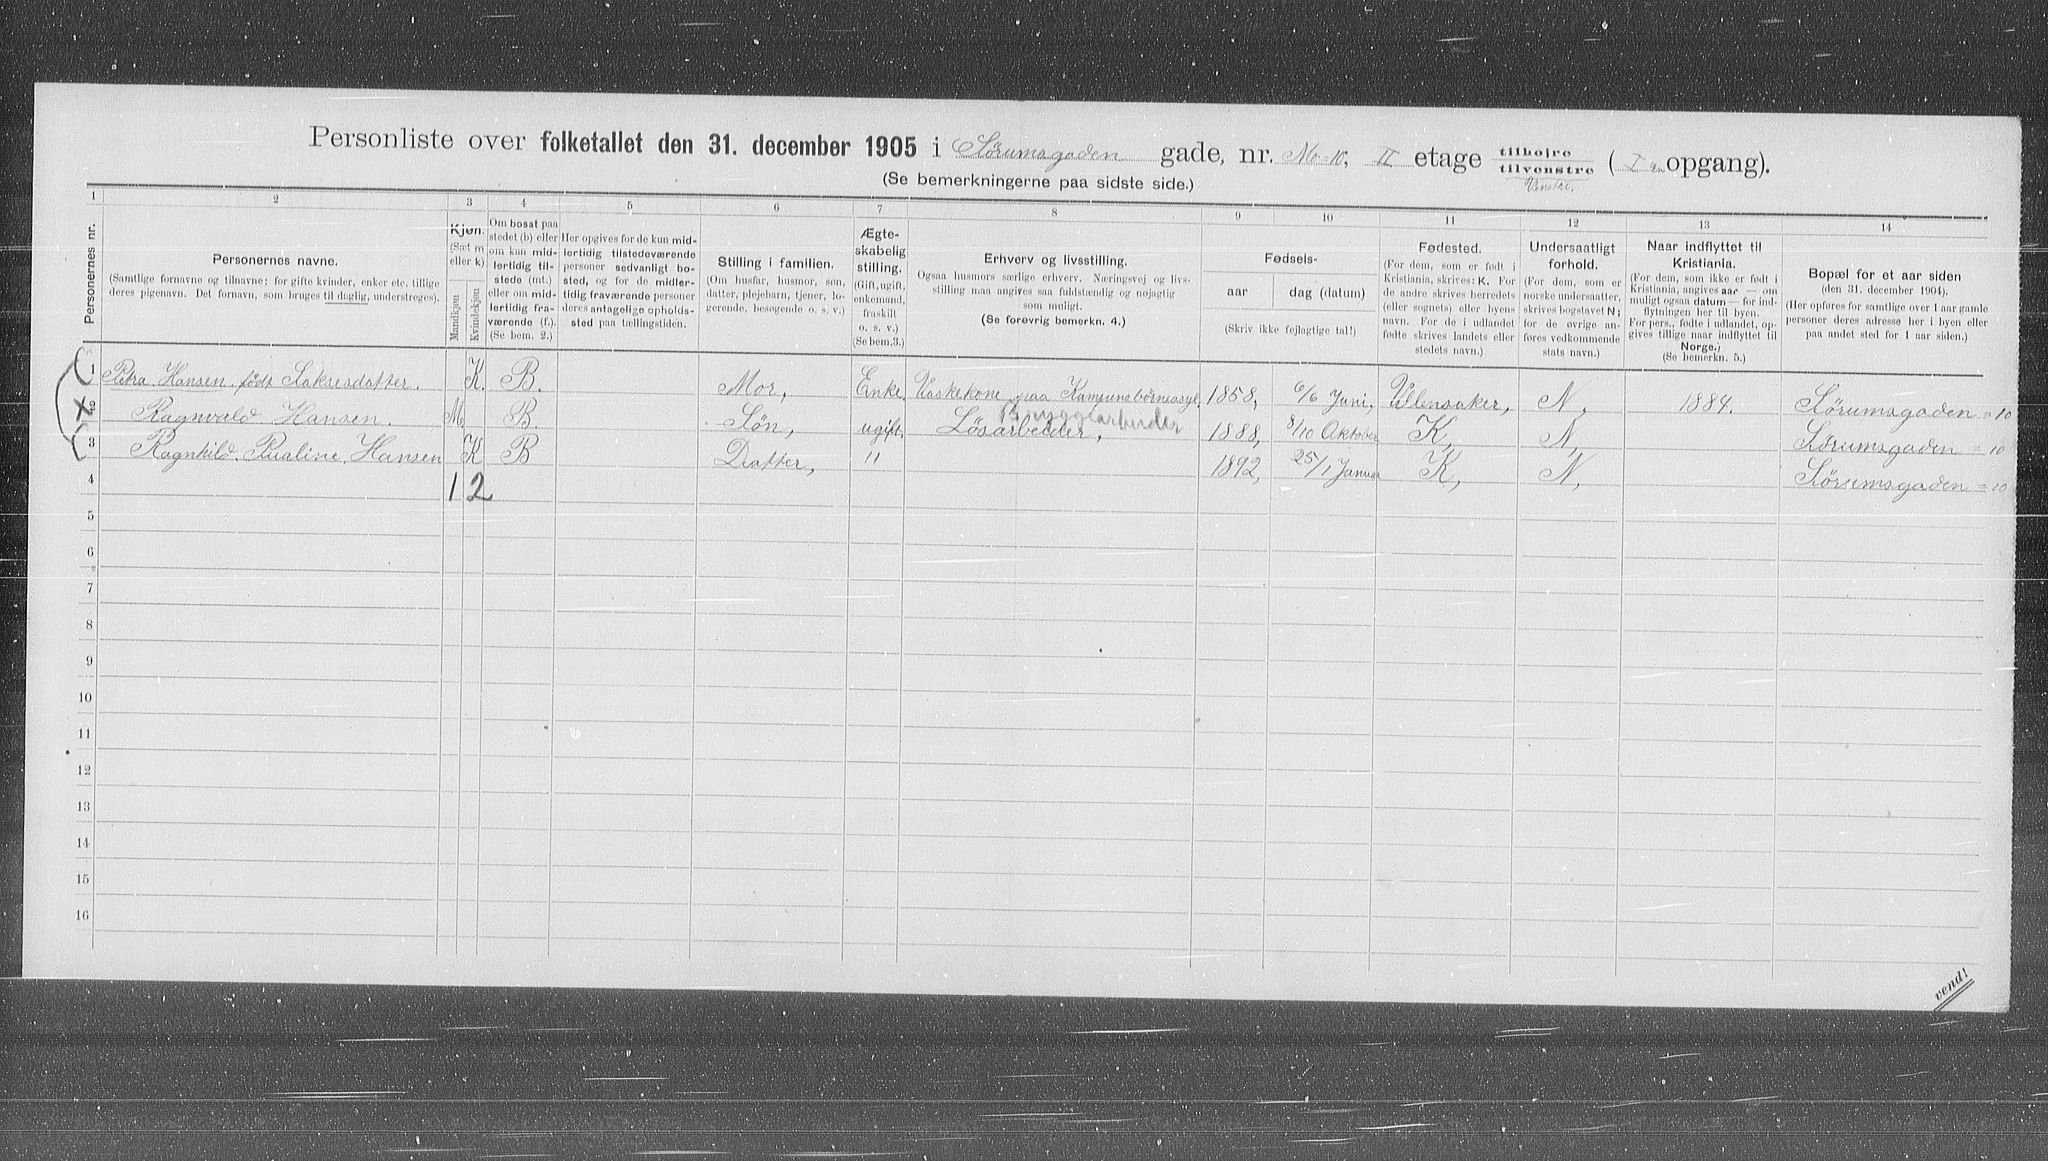 Personliste over folketallet den 31. december 1905 i Sørumsgaden gade, nr. No=10, II etage tilhøjre tilvenstre (I opgang).
Venstre.
(Se bemerkningerne paa sidste side.)
1 2 3 4 5 6 7 8 9 10 11 12 13 14
Personernes nr.
Personernes navne.
(Samtlige fornavne og tilnavne; for gifte kvinder, enker etc. tillige
deres pigenavn. Det fornavn, som bruges til daglig, understreges).
Kjøn.
(Sæt m
eller k)
Mandkjøn
Kvindekjøn
Om bosat paa
stedet (b) eller
om kun mid-
lertidig til-
stede (mt.)
eller om mid-
lertidig fra-
værende (f.).
(Se bem. 2.)
Her opgives for de kun mid-
lertidig tilstedeværende
personer sedvanligt bo-
sted, og for de midler-
tidig fraværende personer
deres antagelige opholds-
sted paa tællingstiden.
Stilling i familien.
(Om husfar, husmor, søn,
datter, plejebarn, tjener, lo-
gerende, besøgende o. s. v.)
Ægte-
skabelig
stilling.
(Gift, ugift,
enkemand,
fraskilt
o. s. v.)
(Se bem.3.)
Erhverv og livsstilling.
Ogsaa husmors særlige erhverv. Næringsvej og livs-
stilling maa angives saa fuldstændig og nøjagtig
som muligt.
(Se forøvrig bemerkn. 4.)
Fødsels-
aar
dag (datum)
(Skriv ikke fejlagtige tal!)
Fødested.
(For dem, som er født i
Kristiania, skrives: K. For
de andre skrives herredets
(eller sognets) eller byens
navn. For de i udlandet
fødte skrives landets eller
stedets navn.)
Undersaatligt
forhold.
(For dem, som er
norske undersaatter,
skrives bogstavet N;
for de øvrige an-
føres vedkommende
stats navn.)
Naar indflyttet til
Kristiania.
(For dem, som ikke er født i
Kristiania, angives aar — om
muligt ogsaa datum — for ind-
flytningen her til byen.
For pers., fødte i udlandet, op-
gives tillige naar indflyttet til
Norge.)
(Se bemerkn. 5.)
Bopæl for et aar siden
(den 31. december 1904).
(Her opføres for samtlige over 1 aar gamle
personer deres adresse her i byen eller
paa andet sted for 1 aar siden.)
1 Petra Hansen født Saksesdatter. K. B. Mor, Enke, Vaskekone paa Kampensbörneasyl, 1858, 6/6 Juni, Ullensaker, N, 1884. Sørumsgaden=10
Bryggearbeider
2 Ragnvald Hansen. M, B. Søn, ugift, Løsarbeider, 1888, 8/10 Oktober K, N, Sørumsgaden=10
3 Ragnhild. Pualine, Hansen K B Datter, " 1892, 25/1 Januar K, N, Sørumsgaden=10
4 1 2
5
6
7
8
9
10
11
12
13
14
15
16
vend!